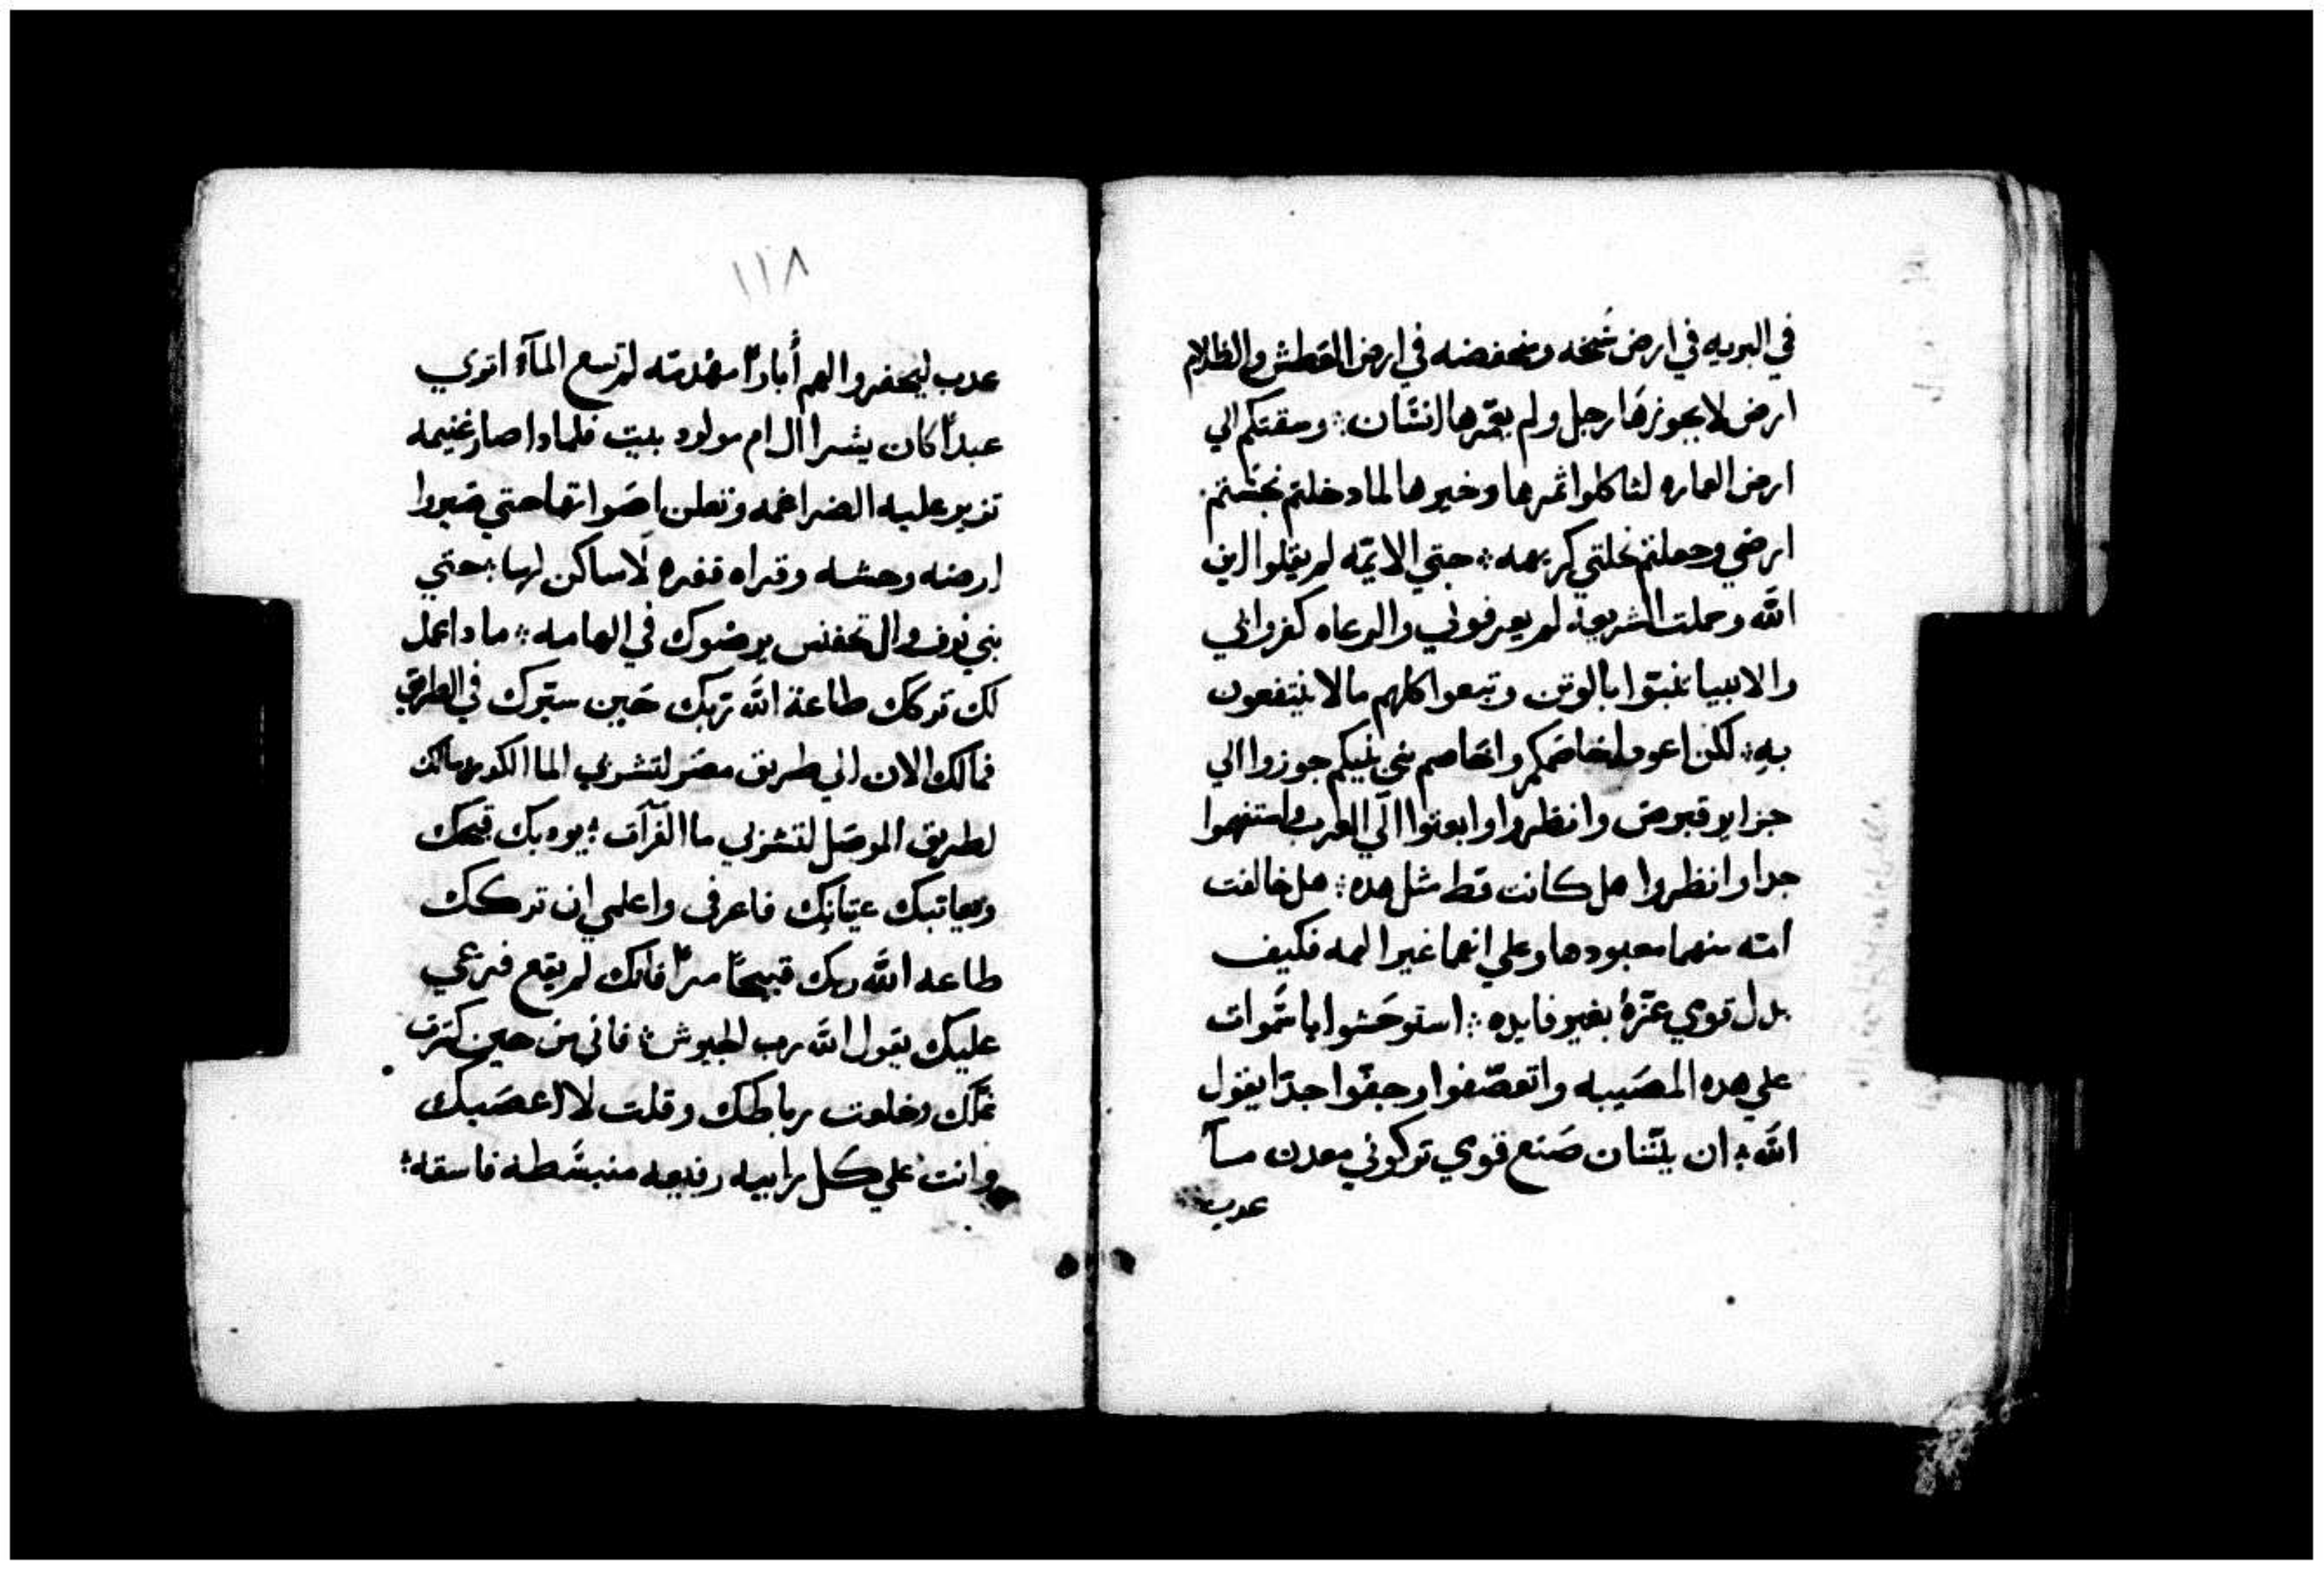 في البريه في ارض سخه ومنخفضه في ارض العطش والظلام
ارض لا يجوزها رجل ولم يعمرها انسان ؞ وسقتكم الي
ارض العماره لتاكلوا ثمرها وخيرها لما دخلتم نجستم
ارضي وجعلتم نحلتي كريهه ؞ حتي الايمه لم يقلوا اين
الله وحملت الشريعه لم يعرفوني والرعاه كفروا بي
والانبيا تنبوا بالوتن وتبعوا كلهم ما لا ينتفعون
به ؞ لكن اعود اخاصمكم واخاصم بني بنيكم جوزوا الي
جزاير قبرص وانظروا وابعتوا الي العرب واستفهموا
جدا وانظروا هل كانت قط مثل هده ؞ هل خالفت
امته منهما معبودها وعلي انهما غير الهه فكيف
بدل قومي عزه بغير فايده ؞ استوحشوا يا سموات
علي هده المصيبه واتعصفوا وجفوا جدا يقول
الله ؞ ان بتنان صنع قومي تركوني معدن مآ
عدب
١١٨
عدب ليحفروا لهم أبارا مهدمته لم تسع المآء اتري
عبدا كان يسرال ام مولود بيت فلمادا صار غنيمه
تزير عليه الضراغمه وتعلن اصواتها حتي صيروا
ارضه وحشه وقراه قفره لا ساكن لها ؞ حتي
بني نوف وال تحفنس يرضوك في الهامه ؞ مادا عمل
لك تركك طاعة الله ربك حين سيرك في الطريق
فمالك الان الي طريق مصر لتشربي الما الكدر ومالك
لطريق الموصل لتشربي ما الفرآت ؞ يودبك قبحك
ويعاتبك عتانك فاعرفي واعلمي ان تركك
طاعه الله ربك قبيحا مرا فانك لم يقع فزعي
عليك يقول الله رب الجيوش ؞ فاني من حين كسرت
غلك وخلعت رباطك وقلت لا اعصيك
وانت علي كل رابيه رفيعه منبسطه فاسقه ؞